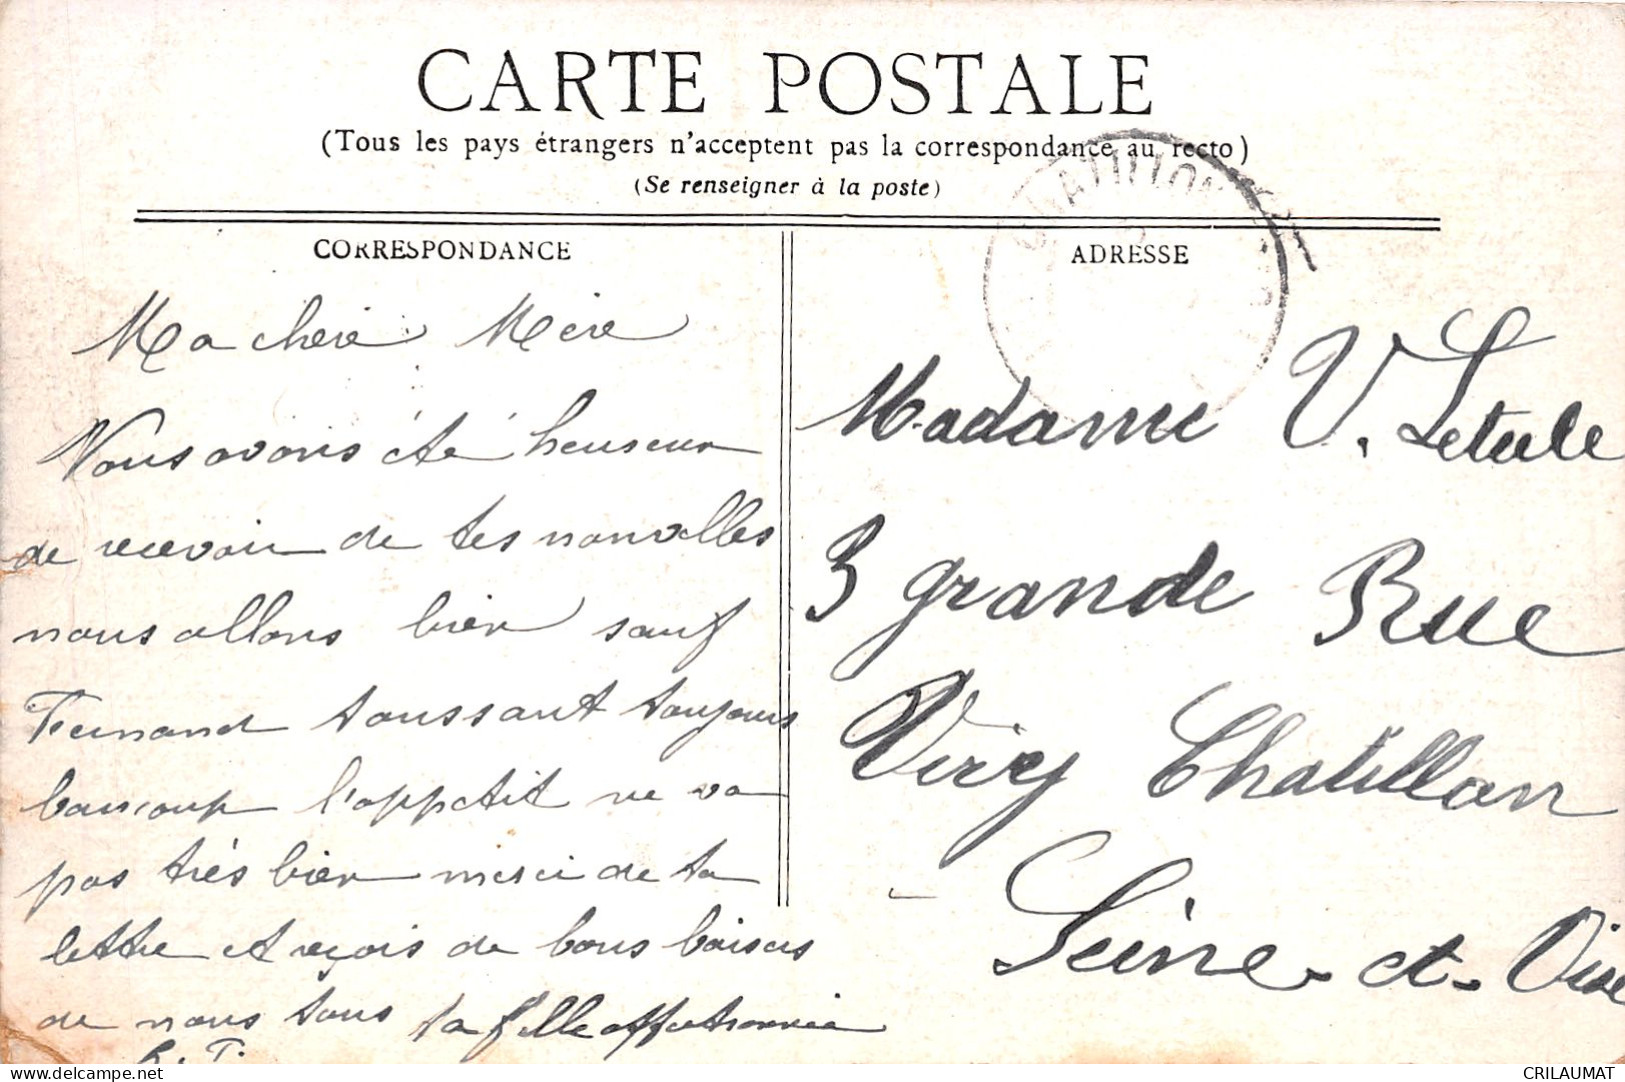 CARTE POSTALE
(Tous les pays étrangers n'acceptent pas la correspondance au recto)
(Se renseigner à la poste)
CORRESPONDANCE
Ma chère Mère
Nous avons été heureux
de recevoir de tes nouvelles
nous allons bien sauf
Fernand toussant toujours
beaucoup l'appétit ne va
pas très bien merci de ta
lettre et reçois de bons baisers
de nous tous ta fille affectionnée
ADRESSE
CHATILLON
Madame V. Letule
3 grande Rue
Viry Chatillon
Seine-et-Oise
www.delcampe.net
CRILAUMAT